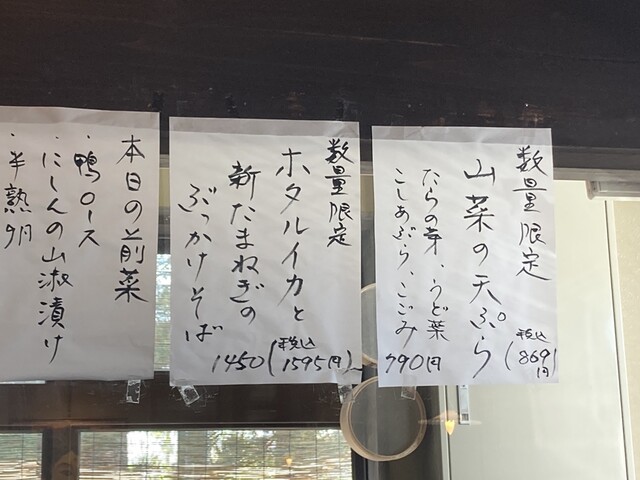 数量限定
山菜の天ぷら
(税込
869
円)
たらの芽、うど葉
こしあぶら、こごみ
790円
数量限定
ホタルイカと
新たまねぎの
ぶっかけそば
1450(税込1595円)
本日の前菜
・鴨ロース
・にしんの山淑漬け
・半熟卵